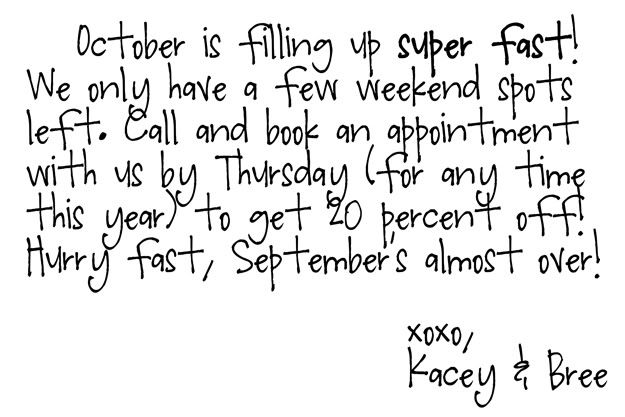 October is filling up super fast!
We only have a few weekend spots
left. Call and book an appointment
with us by Thursday (for any time
this year) to get 20 percent off!
Hurry fast, September's almost over!
xoxo,
Kacey & Bree